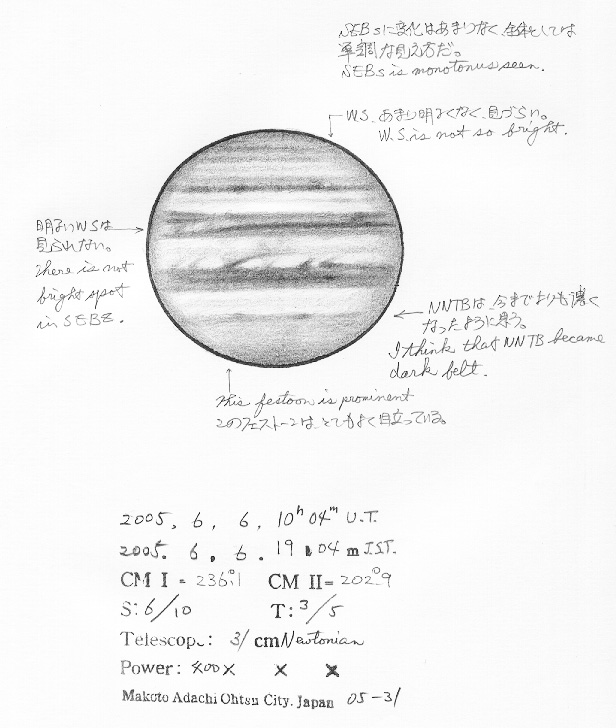 SEBsに変化はあまりなく全体としては
単調な見え方だ。
SEBs is monotonus seen.
W.S. あまり明るくなく、見づらい。
W.S. is not so bright.
明るいWSは
見られない。
there is not
bright spot
in SEBZ.
NNTBは、今までよりも濃く
なったように思う。
I think that NNTB became
dark belt.
This festoon is prominent
このフェストーンは、とてもよく目立っている。
2005. 6. 6. 10h 04m U.T.
2005. 6. 6. 19h 04m J.S.T.
CM I = 236.°1 CM II= 202.°9
S: 6/10 T: 3/5
Telescop.: 31 cm Newtonian
Power: 400× × ×
Makoto Adachi Ohtsu City. Japan 05-31